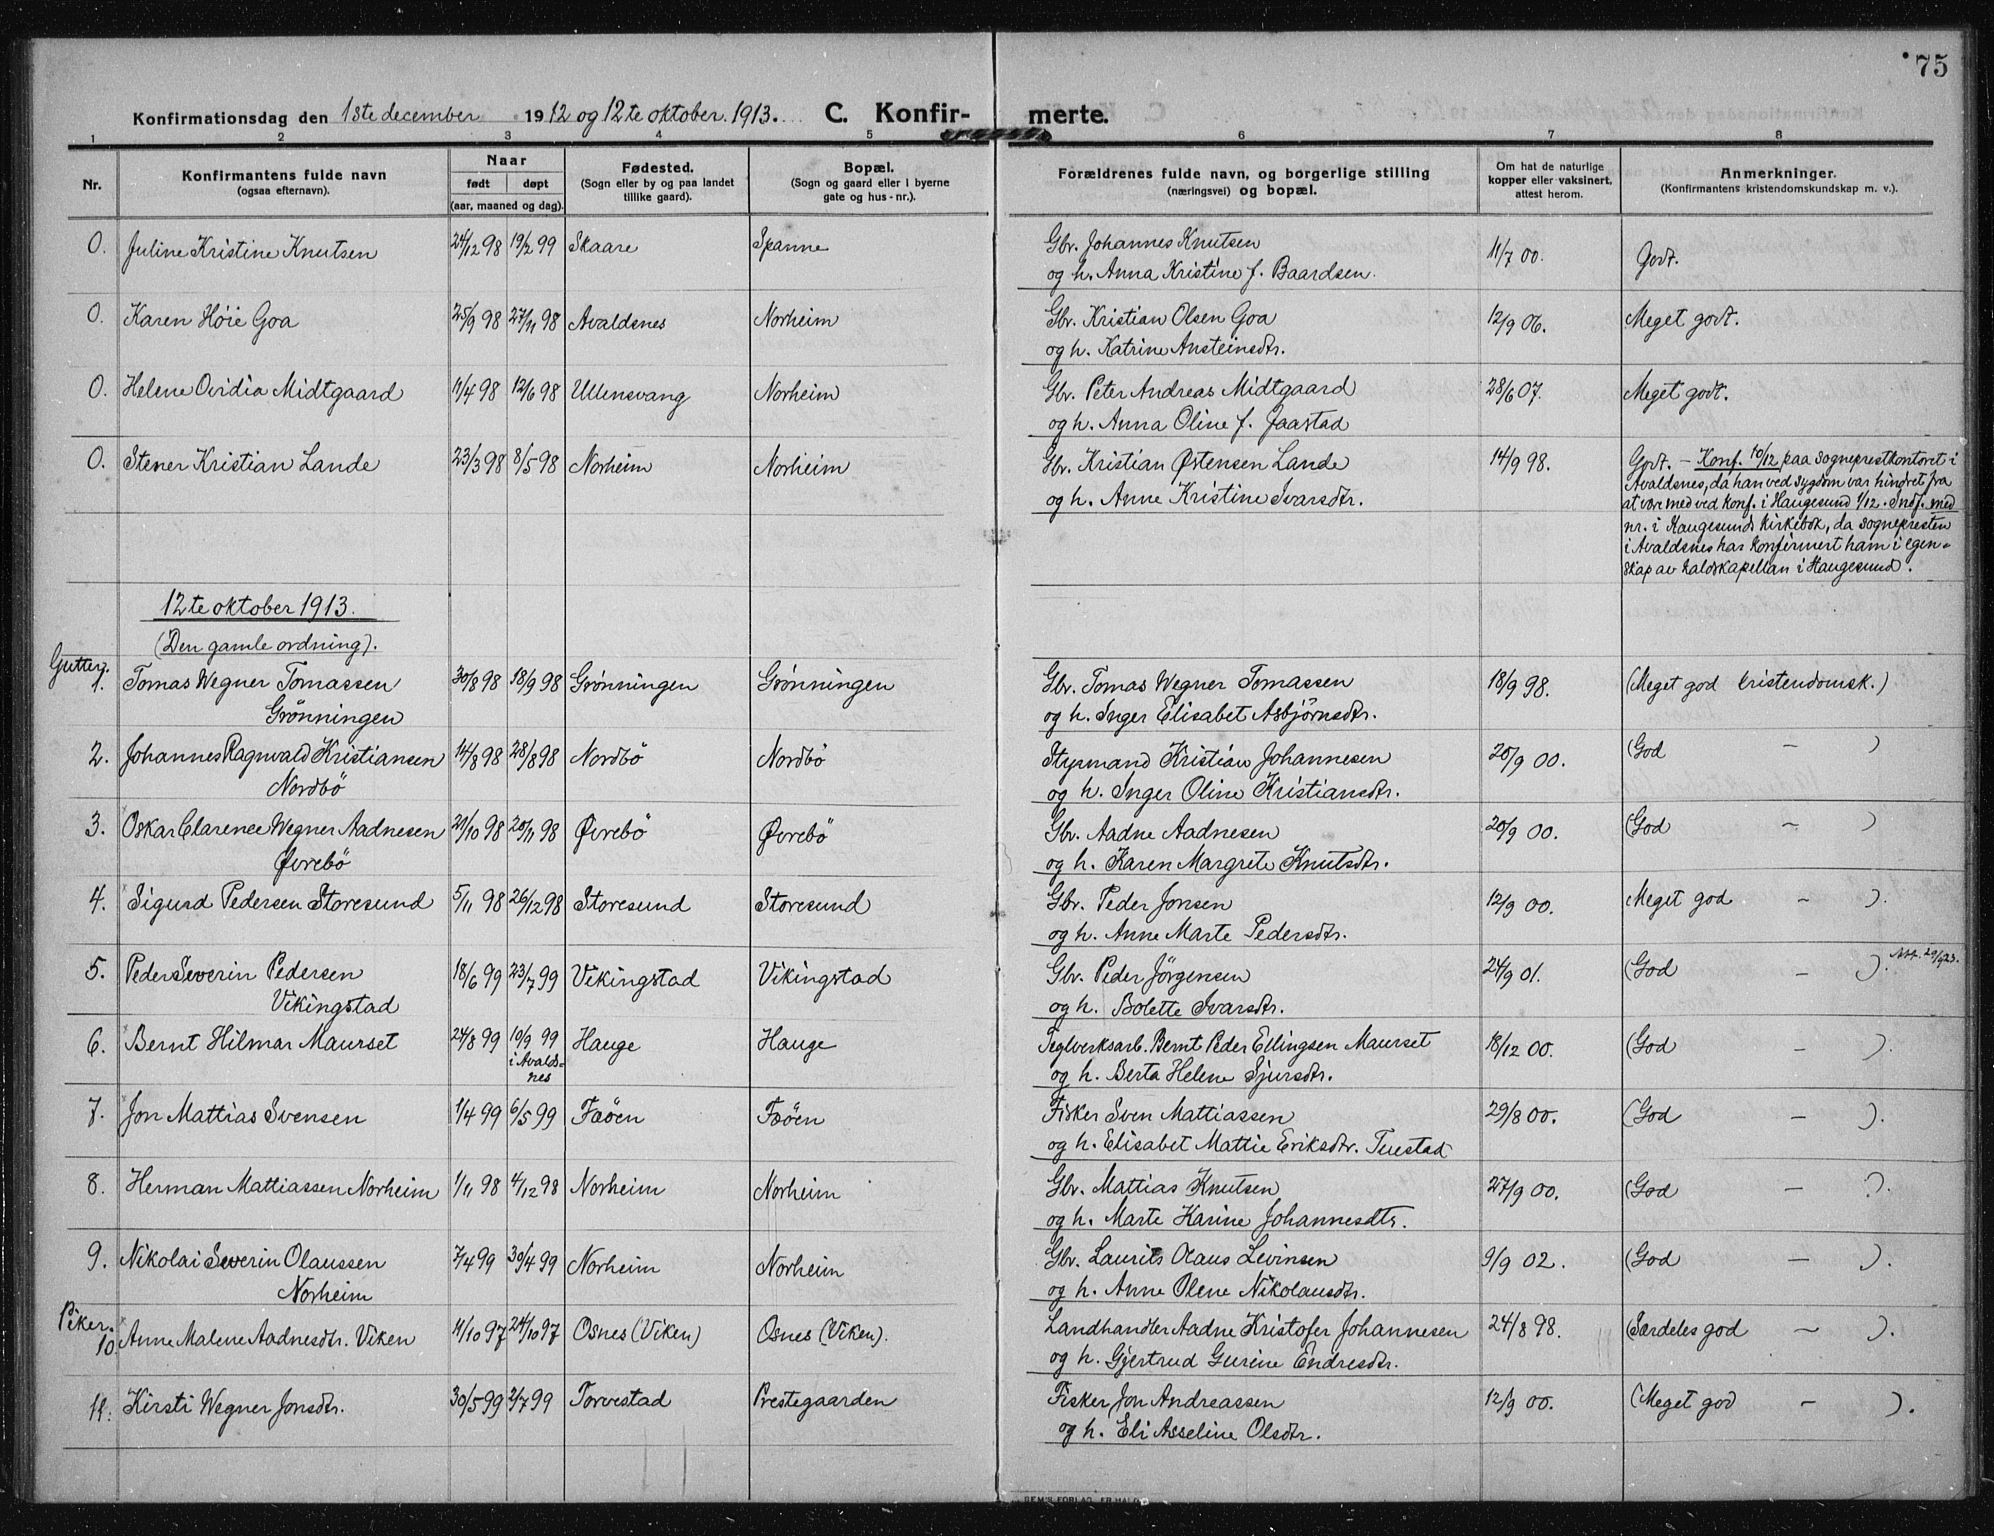 75
Konfirmationsdag den 1ste december 1912 og 12te oktober 1913. C. Konfirmerte.
1 2 3 4 5 6 7 8
Nr. Konfirmantens fulde navn (ogsaa efternavn). Naar født døpt (aar, maaned og dag). Fødested. (Sogn eller by og paa landet tillike gaard). Bopæl. (Sogn og gaard eller i byerne gate og hus-nr.). Forældrenes fulde navn, og borgerlige stilling (næringsvei) og bopæl. Om hat de naturlige kopper eller vaksinert, attest herom. Anmerkninger. (Konfirmantens kristendomskundskap m. v.).
0. Juline Kristine Knutsen 24/12 98 19/2 99 Skaare Spanne Gbr. Johannes Knutsen 11/7 00. Godt.
og h. Anna Kristine f. Baardsen.
0. Karen Høie Goa 25/9 98 27/11 98 Avaldsnes Norheim Gbr. Kristian Olsen Goa 12/9 06. Meget godt.
og h. Katrine Ansteinsdtr.
0. Helene Ovidia Midtgaard 11/4 98 12/6 98 Ullensvang Norheim Gbr. Peter Andreas Midtgaard 28/6 07. Meget godt.
og h. Anna Oline f. Jaastad
0. Stener Kristian Lande 23/3 98 8/5 98 Norheim Norheim Gbr. Kristian Østensen Lande 14/9 98. Godt. — Konf. 10/12 paa sogneprestkontoret i
og h. Anne Kristine Ivarsdtr. Avaldsnes, da han ved sygdom var hindret fra
at være med ved konf. i Haugesund 1/12. Indf. med
nr. i Haugesunds kirkebok, da sognepresten
i Avaldsnes har konfirmert ham i egen-
skap av kaldskapellan i Haugesund.
12te oktober 1913.
(Den gamle ordning).
Gutter.
1. Tomas Wegner Tomassen 30/8 98 18/9 98 Grønningen Grønningen Gbr. Tomas Wegner Tomassen 18/9 98. (Meget god kristendomsk.)
Grønningen og h. Inger Elisabet Asbjørnsdtr.
2. Johannes Ragnvald Kristiansen 14/8 98 28/8 98 Nordbö Nordbö Styrmand Kristian Johannesen 20/9 00. (God — )
Nordbö og h. Inger Oline Kristiansdtr.
3. Oskar Clarence Wegner Aadnesen 21/10 98 20/11 98 Øvrebö Øvrebö Gbr. Aadne Aadnesen 20/9 00. (God — )
Øvrebö og h. Karen Margrete Knutsdtr.
4. Sigurd Pedersen Storesund 5/11 98 26/12 98 Storesund Storesund Gbr. Peder Jonsen 12/9 00. Meget god — ).
og h. Anne Marte Pedersdtr.
5. Peder Severin Pedersen 18/6 99 23/7 99 Vikingstad Vikingstad Gbr. Peder Jörgensen 24/9 01. (God — ).
Vikingstad og h. Bolette Ivarsdtr.
6. Bernt Hilmar Maurset 24/8 99 10/9 99 i Avaldsnes Hauge Hauge Teglverksarb. Bernt Peder Ellingsen Maurset 18/12 00. (God — ).
og h. Berta Helene Sjursdtr.
7. Jon Mattias Svensen 1/4 99 6/5 99 Fæöen Fæöen Fisker Sven Mattiassen 29/8 00. (God — ).
og h. Elisabet Mattie Eriksdtr. Tuestad
8. Herman Mattiassen Norheim 1/11 98 4/12 98 Norheim Norheim Gbr. Mattias Knutsen 27/9 00. (God — ).
og h. Marte Karine Johannesdtr.
9. Nikolai Severin Olaussen 7/4 99 30/4 99 Norheim Norheim Gbr. Laurits Olaus Levinsen 9/9 02. (God — ).
Norheim og h. Anne Olene Nikolausdtr.
Piker.
10. Anne Malene Aadnesdtr. Viken 11/10 97 24/10 97 Osnes (Viken) Osnes (Viken). Landhandler Aadne Kristofer Johannesen 24/8 98. (Særdeles god — ).
og h. Gjertrud Gurine Endresdtr.
11. Kirsti Wegner Jonsdtr. 30/5 99 2/7 99 Torvestad Prestegaarden Fisker Jon Andreassen 12/9 00. (Meget god — ).
og h. Eli Asseline Olsdtr.